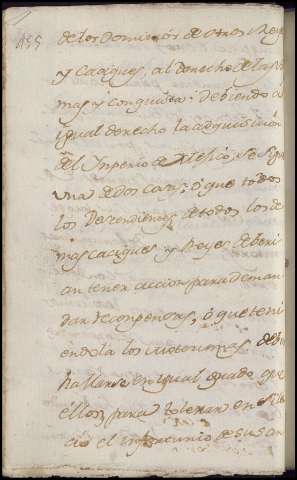 155
de los Dominios de otros Reyes
y caciques, al derecho de las Ar
mas y conquista: debiendo á
igual derecho la adquisicion
del Imperio de Megico, se sigue
una de dos cosas; ó que todos
los Decendientes de todos los de
mas caciques y Reyes deberi
an tener accion para deman
dar recompensas, ó que teni
endola los
hallarse en igual grado que
ellos para tolerar en
cio el infortunio de sus an